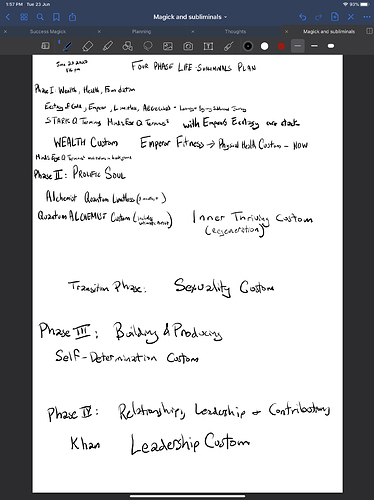 1:57 PM Tue 23 Jun
93%
Magick and subliminals
Success Magick
Planning
Thoughts
Magick and subliminals
June 23 2020
FOUR PHASE LIFE-SUBLIMINALS PLAN
Phase I: Wealth, Health, Foundation
Ecstasy of Gold, Emperor, Limitless, Ascended
STARK Q Terminus Minds Eye Q Terminus² with Emperor Ecstasy are stark
WEALTH Custom Emperor Fitness → Physical Health Custom - NOW
Minds Eye Q Terminus² in background
Phase II: PROLIFIC SOUL
Alchemist Quantum Limitless
Quantum ALCHEMIST Custom
Inner Thriving Custom
(regeneration)
Transition Phase: Sexuality Custom
Phase III: Building & Producing
Self-Determination Custom
Phase IV: Relationships, Leadership & Contributions
Khan Leadership Custom